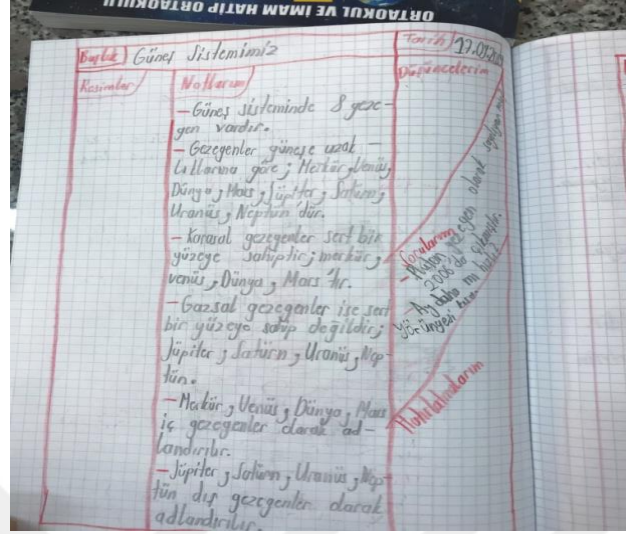 ORTAOKUL VE İMAM HATİP ORTAOKULU
Başlık Güneş Sistemimiz
Tarih 17.09.
Resimler
Notlarım
Düşüncelerim
-Güneş sisteminde 8 geze-
gen vardır.
-Gezegenler güneşe uzak-
lıklarına göre; Merkür, Venüs,
Dünya, Mars, Jüpiter, Satürn,
Uranüs, Neptün'dür.
-Karasal gezegenler sert bir
yüzeye sahiptir; merkür,
venüs, Dünya, Mars'tır.
-Gazsal gezegenler ise sert
bir yüzeye sahip değildir;
Jüpiter, Satürn, Uranüs, Nep-
tün.
-Merkür, Venüs, Dünya, Mars
iç gezegenler olarak ad-
landırılır.
-Jüpiter, Satürn, Uranüs, Nep-
tün dış gezegenler olarak
adlandırılır.
Sorularım
-Plüton gezegen olarak
2006'da çıkmıştır.
-Ay daha mı
yörüngesi
Hatırlatmalarım